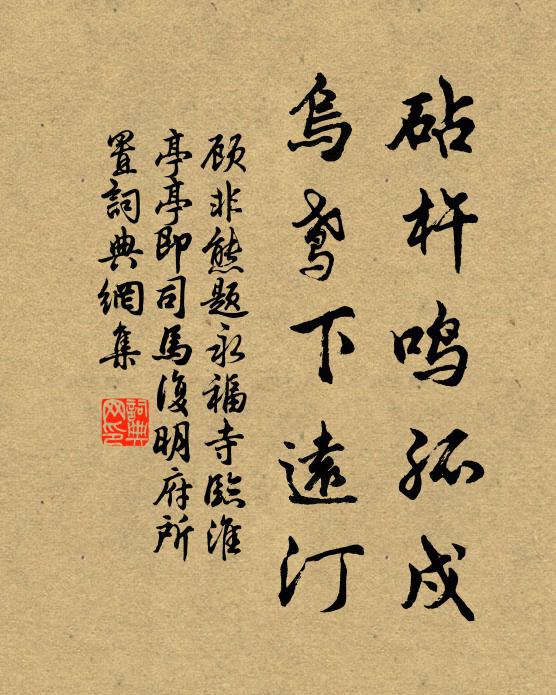 砧杵鸣孤戍
乌鸢下遠汀
顾非熊题永福寺臨淮
亭亭即司馬復明府所
置詞典網集
詞典网印